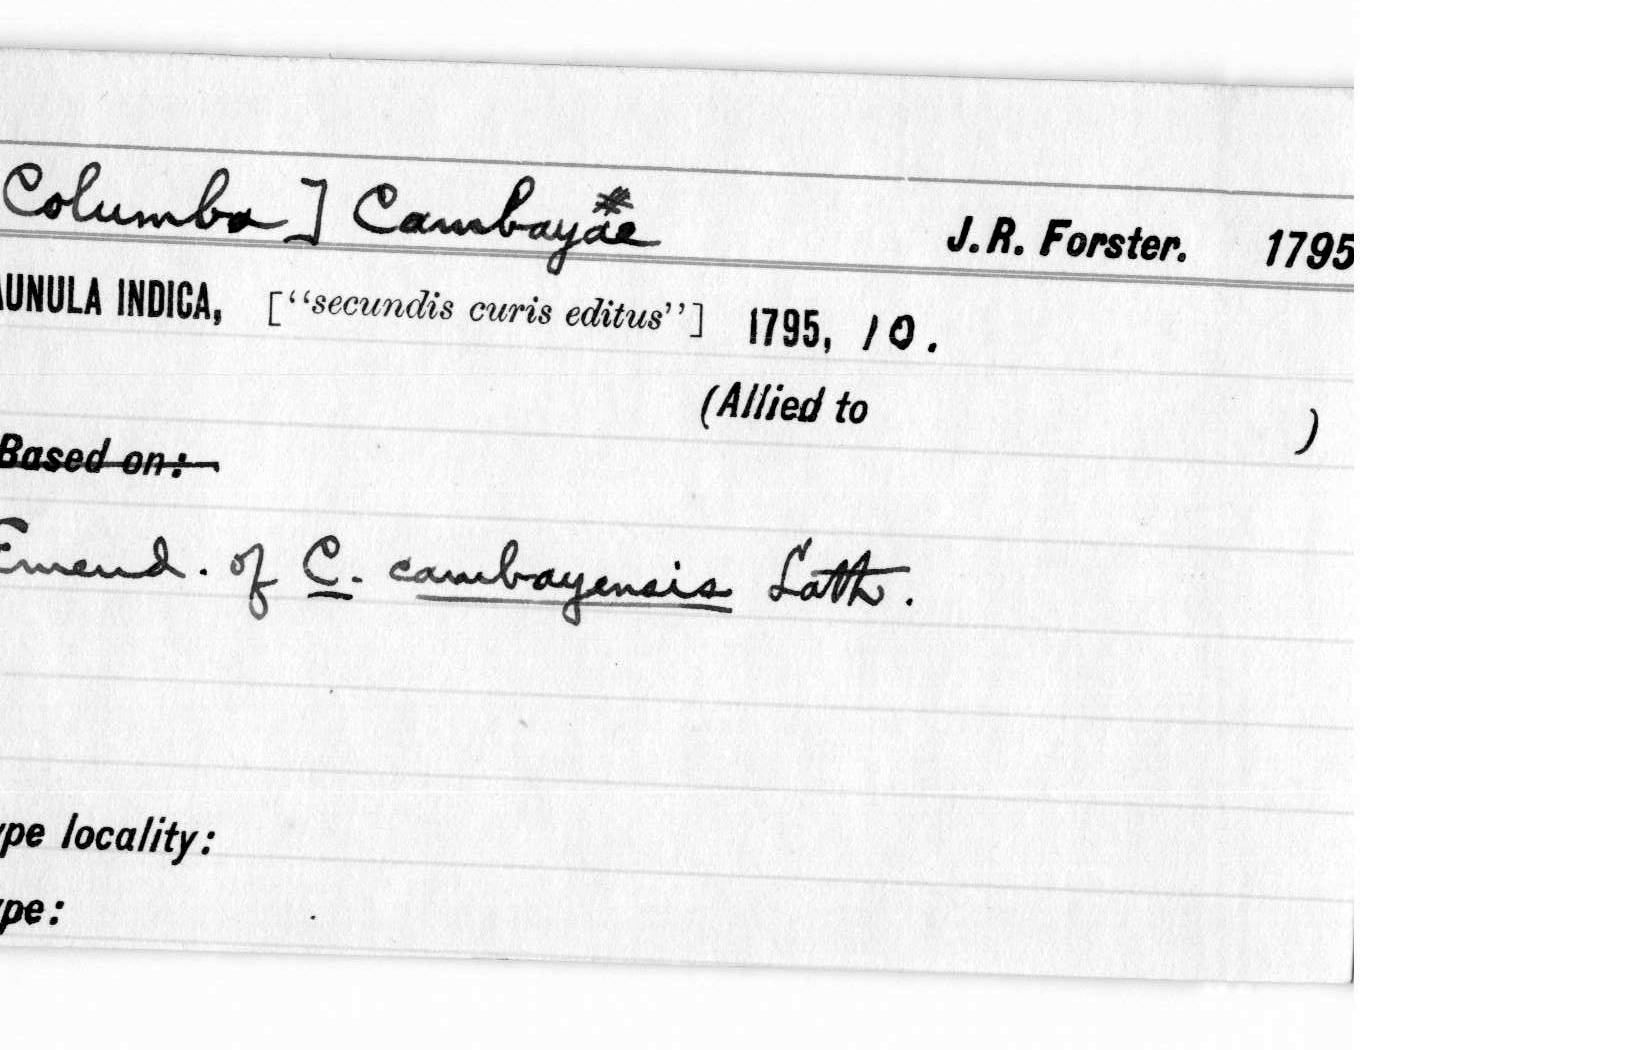 Columba] Cambayae
J. R. Forster. 1795
AUNULA INDICA, [“secundis curis editus”] 1795, 10.
(Allied to )
Based on:
Emend. of C. cambayensis Lath.
ype locality:
ype: